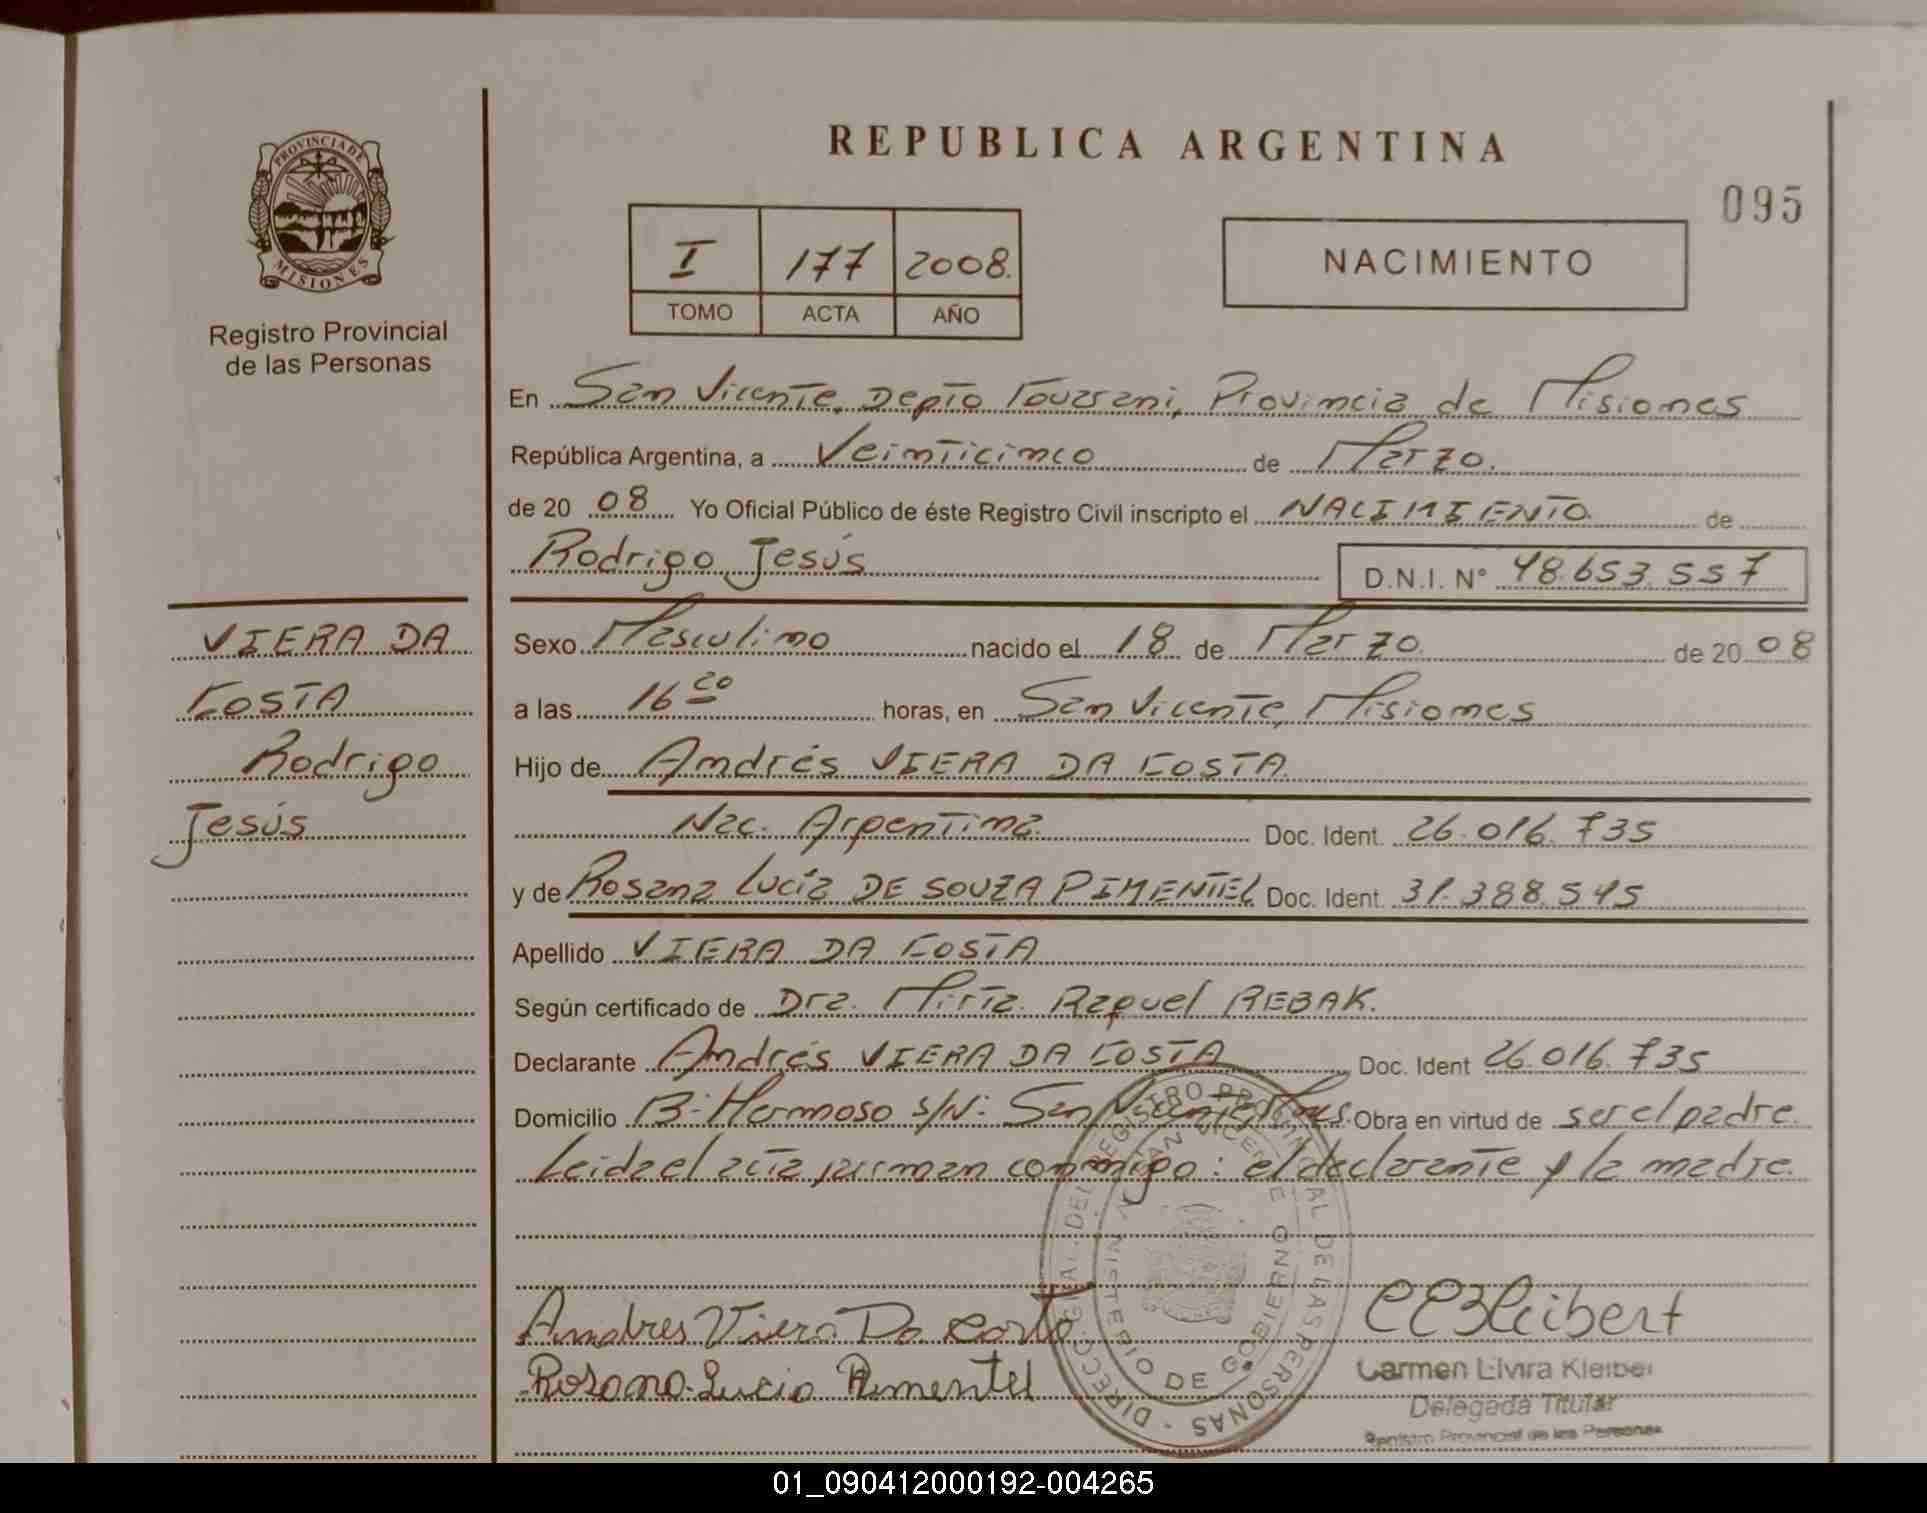 REPUBLICA ARGENTINA
095
PROVINCIA DE
MISIONES
Registro Provincial
de las Personas
I 177 2008.
TOMO ACTA AÑO
NACIMIENTO
En San Vicente, Depto Guarani, Provincia de Misiones
República Argentina, a Veinticinco de Marzo.
de 20 08 Yo Oficial Público de éste Registro Civil inscripto el NACIMIENTO de
Rodrigo Jesús D.N.I. N° 48.653.557
VIERA DA
COSTA
Rodrigo
Jesús
Sexo Masculino nacido el 18 de Marzo. de 20 08
a las 16 horas, en San Vicente, Misiones
Hijo de Andrés VIERA DA COSTA
Nac. Argentina. Doc. Ident. 26.016.735
y de Rosana Lucía DE SOUZA PIMENTEL Doc. Ident. 31.388.545
Apellido VIERA DA COSTA
Según certificado de Dra. Mirta Raquel REBAK.
Declarante Andrés VIERA DA COSTA Doc. Ident 26.016.735
Domicilio B: Hermoso s/N: San Vicente Mnes. Obra en virtud de ser el padre.
Leida el acta firman conmigo: el declarante y la madre.
DIRECC. GRAL. DEL REGISTRO PROVINCIAL DE LAS PERSONAS
SAN VICENTE
MINISTERIO DE GOBIERNO
Andres Viera Da Costa
Rosana Lucia Pimentel
Carmen Elvira Kleiber
Delegada Titular
Registro Provincial de las Personas
01_090412000192-004265